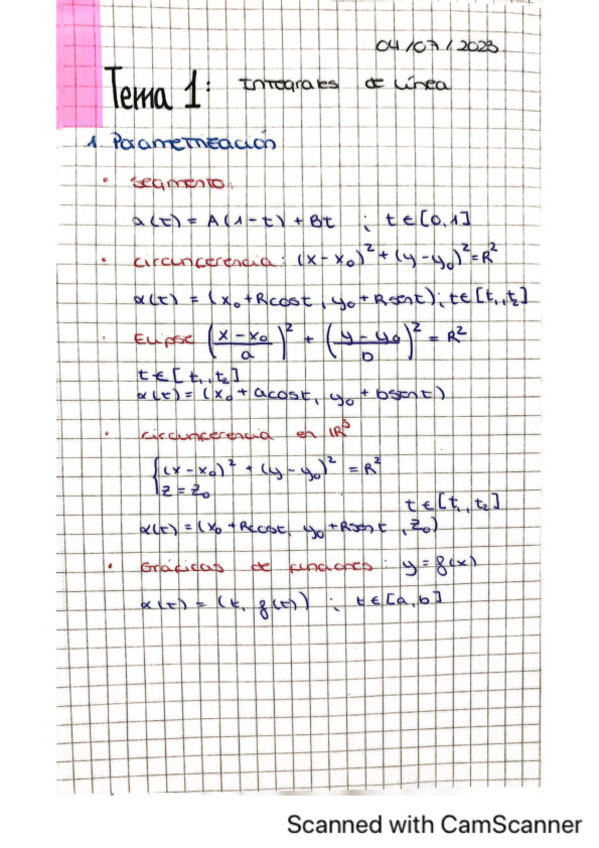 04/07/2023
Tema 1: Integrales de Línea
1. Parametrización
• Segmento:
α(t) = A(1-t) + Bt ; t∈[0,1]
• circunferencia: (x-x₀)² + (y-y₀)² = R²
α(t) = (x₀+Rcost, y₀+Rsent); t∈[t₁,t₂]
• Elipse ((x-x₀)/a)² + ((y-y₀)/b)² = R²
t∈[t₁,t₂]
α(t) = (x₀+acost, y₀+bsent)
• circunferencia en ℝ³
{(x-x₀)² + (y-y₀)² = R²
z = z₀
t∈[t₁,t₂]
α(t) = (x₀+Rcost, y₀+Rsent, z₀)
• Gráficas de funciones: y = f(x)
α(t) = (t, f(t)) ; t∈[a,b]
Scanned with CamScanner